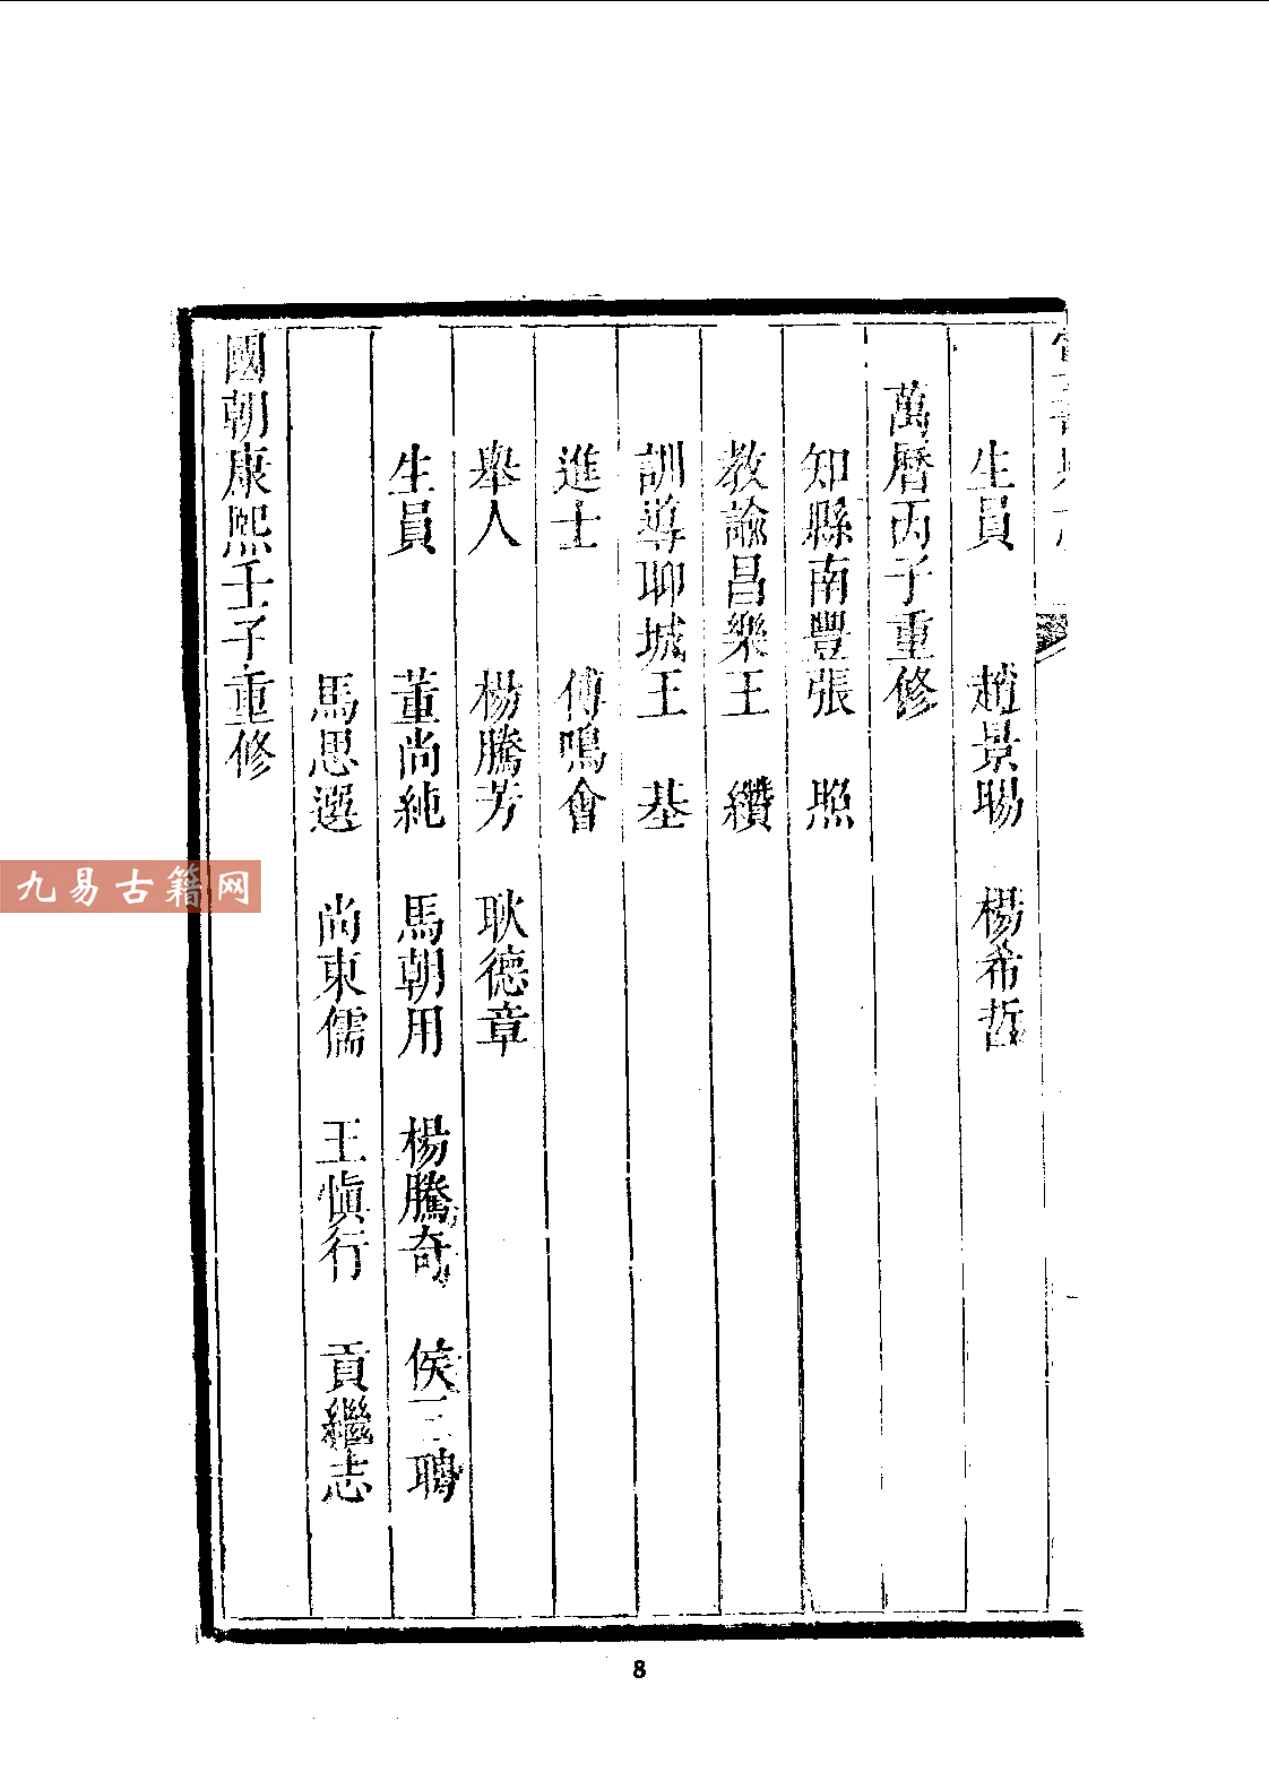 生員 趙景暘 楊希哲
萬曆丙子重修
知縣南豐張 照
教諭昌樂王 纘
訓導聊城王 基
進士 傅鳴會
舉人 楊騰芳 耿德章
生員 董尚純 馬朝用 楊騰奇 侯三聘
馬思選 尚東儒 王愼行 貢繼志
國朝康熙壬子重修
九易古籍网
8